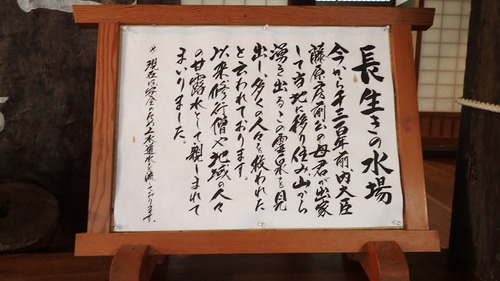 長生きの水場
今から千三百年前、内大臣
藤原房前公の母君が出家
して当地に移り住み山から
湧き出るこの霊泉を見
出し多くの人々を救われた
と云われております。
以来修行僧や地域の人々
の甘露水として親しまれて
まいりました。
※現在は安全のため上水道水を流しております。